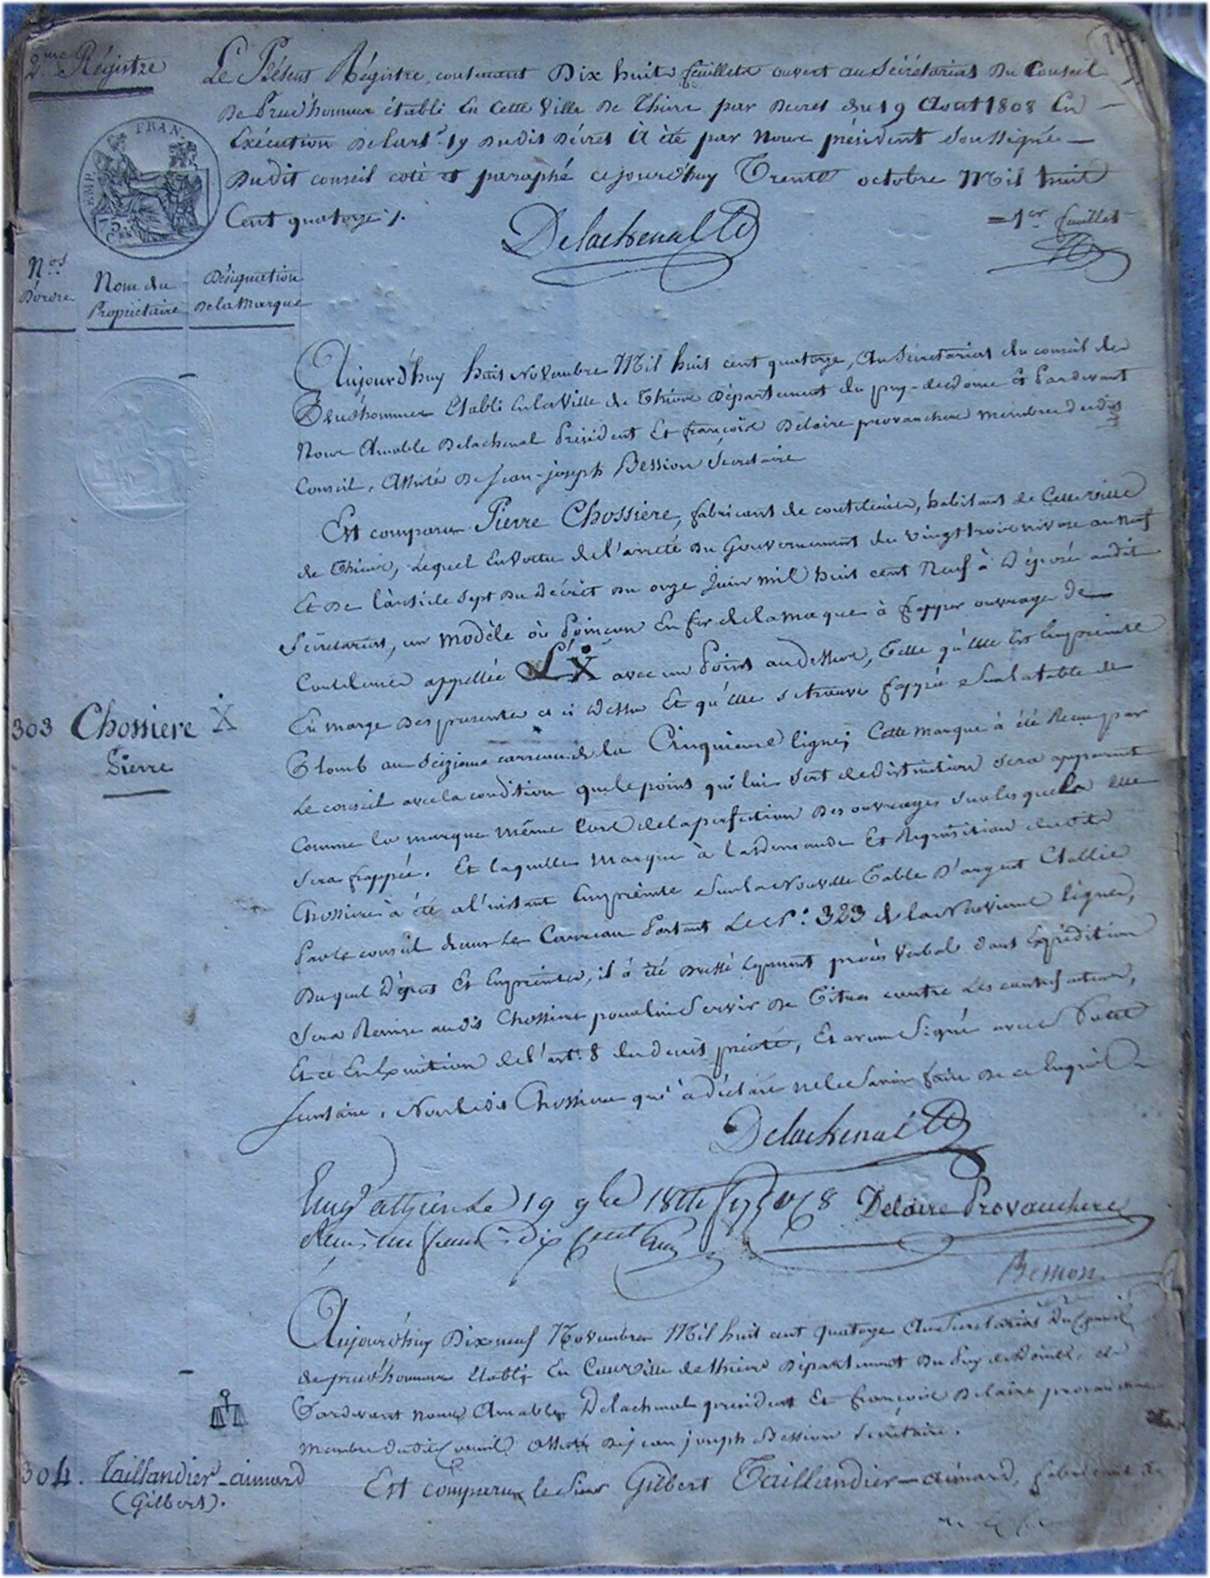 2.me Régistre
Le Présent Régistre, contenant Dix huit feuillets ouvert au Sécrétariat du Conseil
de Prud'hommes établi En Cette Ville de Thiers par Décret du 19 Aout 1808 En
Exécution de l'art. 19 dudit Décret à été par Nous président Soussigné
dudit conseil coté et paraphé cejourd'huy Trente octobre Mil huit
Cent quatorze /.
EMP. FRAN.
Delachenal
= 1er feuillet
Nos D'ordre
Nom du Propriétaire
Désignation de la Marque
Aujourd'huy huit Novembre Mil huit cent quatorze, Au Sécretariat du conseil de
Prud'hommes Etabli En la Ville de Thiers Département du puy-de-dome et Pardevant
Nous Amable Delachenal Président Et françois Delaire provanchere membre dudit
Conseil, Assisté de Jean-joseph Bession Sécretaire
Est comparu Pierre Chossiere, fabricant de coutelerie, habitant de Cette ville
de Thiers, Lequel En vertu de l'arreté du Gouvernement du vingt trois nivose an neuf
Et de l'article Sept du Décret du onze Juin mil huit cent Neuf à Déposé audit
Sécretariat, un modèle ou Poinçon En fer de la marque à frapper ouvrage de
Coutelerie appellée L'X avec un Point au dessus, Telle qu'elle Est Empreinte
En marge des presentes et ci dessu Et qu'elle se trouve frappée Sur la table de
Plomb au Seizieme carreau de la Cinquieme ligne; Cette marque à été Reçue par
Le conseil avec la condition que le point qui lui Sert de distinction Sera apparent
Comme la marque même Lors de la perfection des ouvrages Sur lesquels elle
Sera frappée. Et laquelle Marque à la demande Et Requisition dudit
Chossiere à été a l'instant Empreinte Sur la Nouvelle Table d'argent Etablie
Par le conseil dans Le Carreau Portant Le No. 323 de la Neuvieme ligne,
Duquel Dépot Et Empreinte, il à été dressé Le present procès verbal dont Expédition
Sera Remise audit Chossiere pour lui Servir de Titre contre Les contrefacteurs,
Et ce En Exécution de l'art. 8 du decret précité, Et avons Signé avec Notre
Secretaire, Non Ledit Chossiere qui à déclaré ne le Savoir faire de ce Enquis
303 Chossiere Pierre
X
Delachenal
Enreg. à thiers Le 19 9bre 1814
Delaire Provanchere
Bession
Aujourd'huy Dix neuf Novembre Mil huit cent quatorze Au Secretariat Du Conseil
de prud'hommes Etabli En Cette ville de thiers Département Du Puy de Dome, et
Pardevant nous Amable Delachenal president Et françois Delaire provanchere
Membre dudit Conseil assisté de jean joseph Bession Secrétaire.
304. Taillandier-aimard
(Gilbert).
Est comparu le Sieur Gilbert Taillandier-aimard, fabricant de